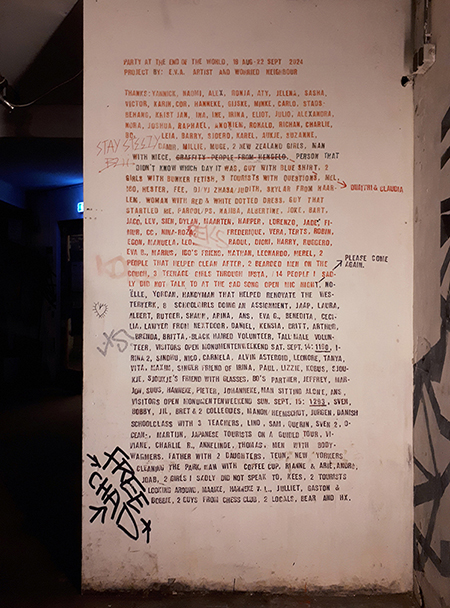 PARTY AT THE END OF THE WORLD, 18 AUG-22 SEPT 2024
PROJECT BY: E.V.A. ARTIST AND WORRIED NEIGHBOUR
THANKS: YANNICK, NAOMI, ALEX, RONJA, ATY, JELENA, SASHA,
VICTOR, KARIN, COR, HANNEKE, SIJSKE, MINKE, CARLO, STADS-
BEHANG, KRISTJAN, INA, INE, IRINA, ELIOT, JULIO, ALEXANDRA,
NORA, JOSHUA, RAPHAEL, RONALD, RICHAN, CHARLIE,
LEIA, BARRY, SJOERD, KAREL, AUKJE, SUZANNE,
MILLIE, MUGE, 2 NEW ZEALAND GIRLS, MAN
STAY SLEEZY
WITH NIECE, GRAFFITY PEOPLE FROM HENGELO, PERSON THAT
DIDN'T KNOW WHICH DAY IT WAS, GUY WITH BLUE SHIRT, 2
GIRLS WITH BUNKER FETISH, 3 TOURISTS WITH QUESTIONS, MEL-
HESTER, FEE, DJ/VJ ZHANA/JUDITH, SKYLAR FROM HAAR-
DIMITRI & CLAUDIA
LEM, WOMAN WITH RED & WHITE DOTTED DRESS, GUY THAT
STARTLED ME, NAIMA, ALBERTINE, JOKE, BART,
JACO, LEV, SIEN, DYLAN, MAARTEN, HARPER, LORENZO, JADE, FI-
NIER, CC, NINA-ROZA, FREDERIQUE, VERA, TEATS, ROBIN,
EGON, MANUELA, LEO, RAOUL, DIONI, HARRY, RUGGERO,
EVA B., MARIUS, IGO'S FRIEND, NATHAN, LEONARDO, MEREL, 2
PEOPLE THAT HELPED CLEAN AFTER, 2 BEARDED MEN ON THE
PLEASE COME
AGAIN.
COUCH, 3 TEENAGE GIRLS THROUGH INSTA, 14 PEOPLE I SAD-
LY DID NOT TALK TO AT THE SAD SONG OPEN MIC NIGHT, NO-
ELLE, YORDAN, HANDYMAN THAT HELPED RENOVATE THE WES-
TERKERK, 8 SCHOOLGIRLS DOING AN ASSIGNMENT, JAAP, LAURA,
ALBERT, RUTGER, SHAUN, ARINA, ANS, EVA G., BENEDITA, CECI-
LIA, LAWYER FROM NEXTDOOR, DANIEL, KENSIA, BRITT, ARTHUR,
BRENDA, BRITTA, BLACK HAIRED VOLUNTEER, TALL MALE VOLUN-
TEER, VISITORS OPEN MONUMENTENWEEKEND SAT. SEPT. 14: 1150, I-
RINA 2, SINDHU, NICO, CARMELA, ALVIN ASTEROID, LEONORE, TANYA,
VITA, MAXIM, SINGER FRIEND OF IRINA, PAUL, LIZZIE, KOBUS, SJOU-
KJE, SJOUKJE'S FRIEND WITH GLASSES, BO'S PARTNER, JEFFREY, MAR-
JAN, SUUS, HANNEKE, PIETER, JOHANNEKE, MAN SITTING ALONE, ANS,
VISITORS OPEN MONUMENTENWEEKEND SUN. SEPT. 15: 1293, SVEN,
BOBBY, JIL, BRET & 2 COLLEGUES, MANON HEEMSCHUT, JURGEN, DANISH
SCHOOLCLASS WITH 3 TEACHERS, LIND, SAM, QUERIN, SVEN 2, O-
CEAN, MARTIJN, JAPANESE TOURISTS ON A GUIDED TOUR, VI-
VIANE, CHARLIE R., ANNELINDE, THOMAS, MEN WITH BODY-
WARMERS, FATHER WITH 2 DAUGHTERS, TEUN, NEW YORKERS
CLEANING THE PARK, MAN WITH COFFEE CUP, RIANNE & ARIE, ANDRE,
JOAB, 2 GIRLS I SADLY DID NOT SPEAK TO, KEES, 2 TOURISTS
LOOKING AROUND, MAAIKE, HANNEKE V. L., JULLIET, GASTON &
BOBBIE, 2 GUYS FROM CHESS CLUB, 2 LOCALS, BEAR AND MX.
FREE
CHAD